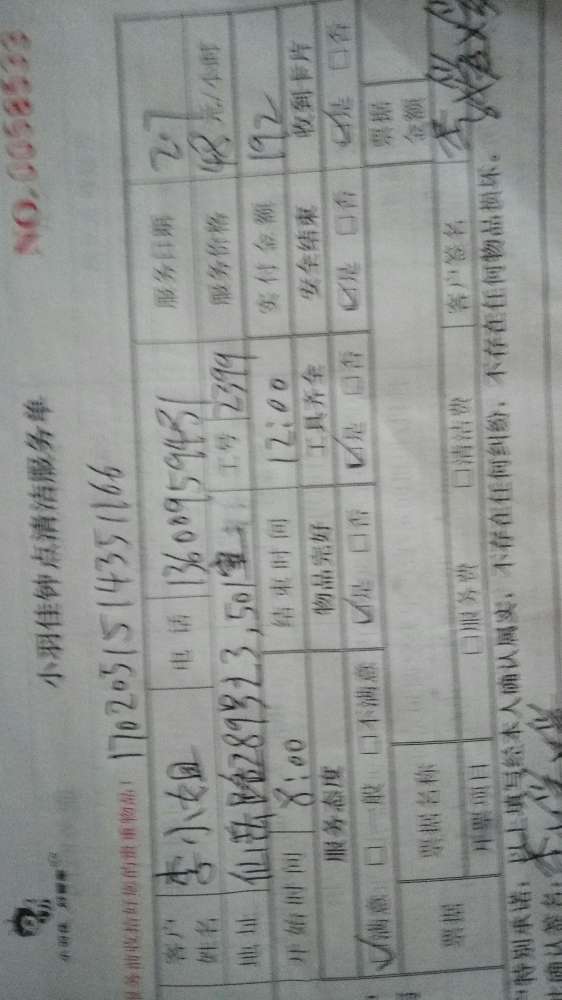 小羽佳钟点清洁服务单
NO.0058533
170205151435166
客户姓名 李小姐 电话 13600959431 服务日期 2.7
地址 仙岳路289号23,501室 工号 2399 服务价格 48元/小时
开始时间 8:00 结束时间 12:00 实付金额 192
服务态度 物品完好 工具齐全 安全结束 收到卡片
☑满意 □一般 □不满意 ☑是 □否 ☑是 □否 ☑是 □否 ☑是 □否
票据 票据名称 票据金额
开票项目 □服务费 □清洁费 客户签名
特别承诺：以上填写经本人确认属实，不存在任何纠纷，不存在任何物品损坏。
确认签名：